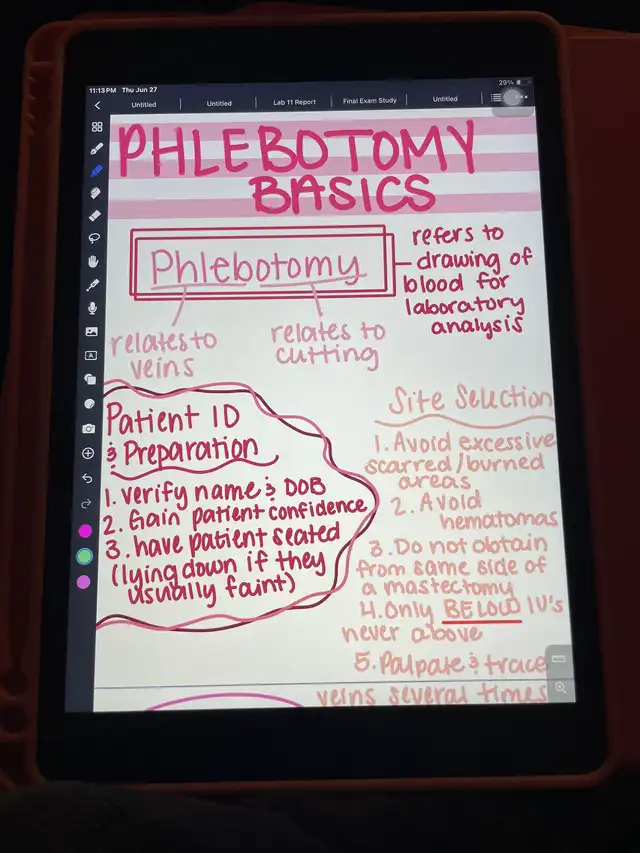 11:13 PM Thu Jun 27
29%
Untitled
Untitled
Lab 11 Report
Final Exam Study
Untitled
PHLEBOTOMY
BASICS
Phlebotomy
refers to
drawing of
blood for
laboratory
analysis
relates to
veins
relates to
cutting
Patient ID
& Preparation
1. verify name & DOB
2. Gain patient confidence
3. have patient seated
(lying down if they
usually faint)
Site Selection
1. Avoid excessive
scarred/burned
areas
2. Avoid
hematomas
3. Do not obtain
from same side of
a mastectomy
4. Only BELOW IV's
never above
5. Palpate & trace
veins several times